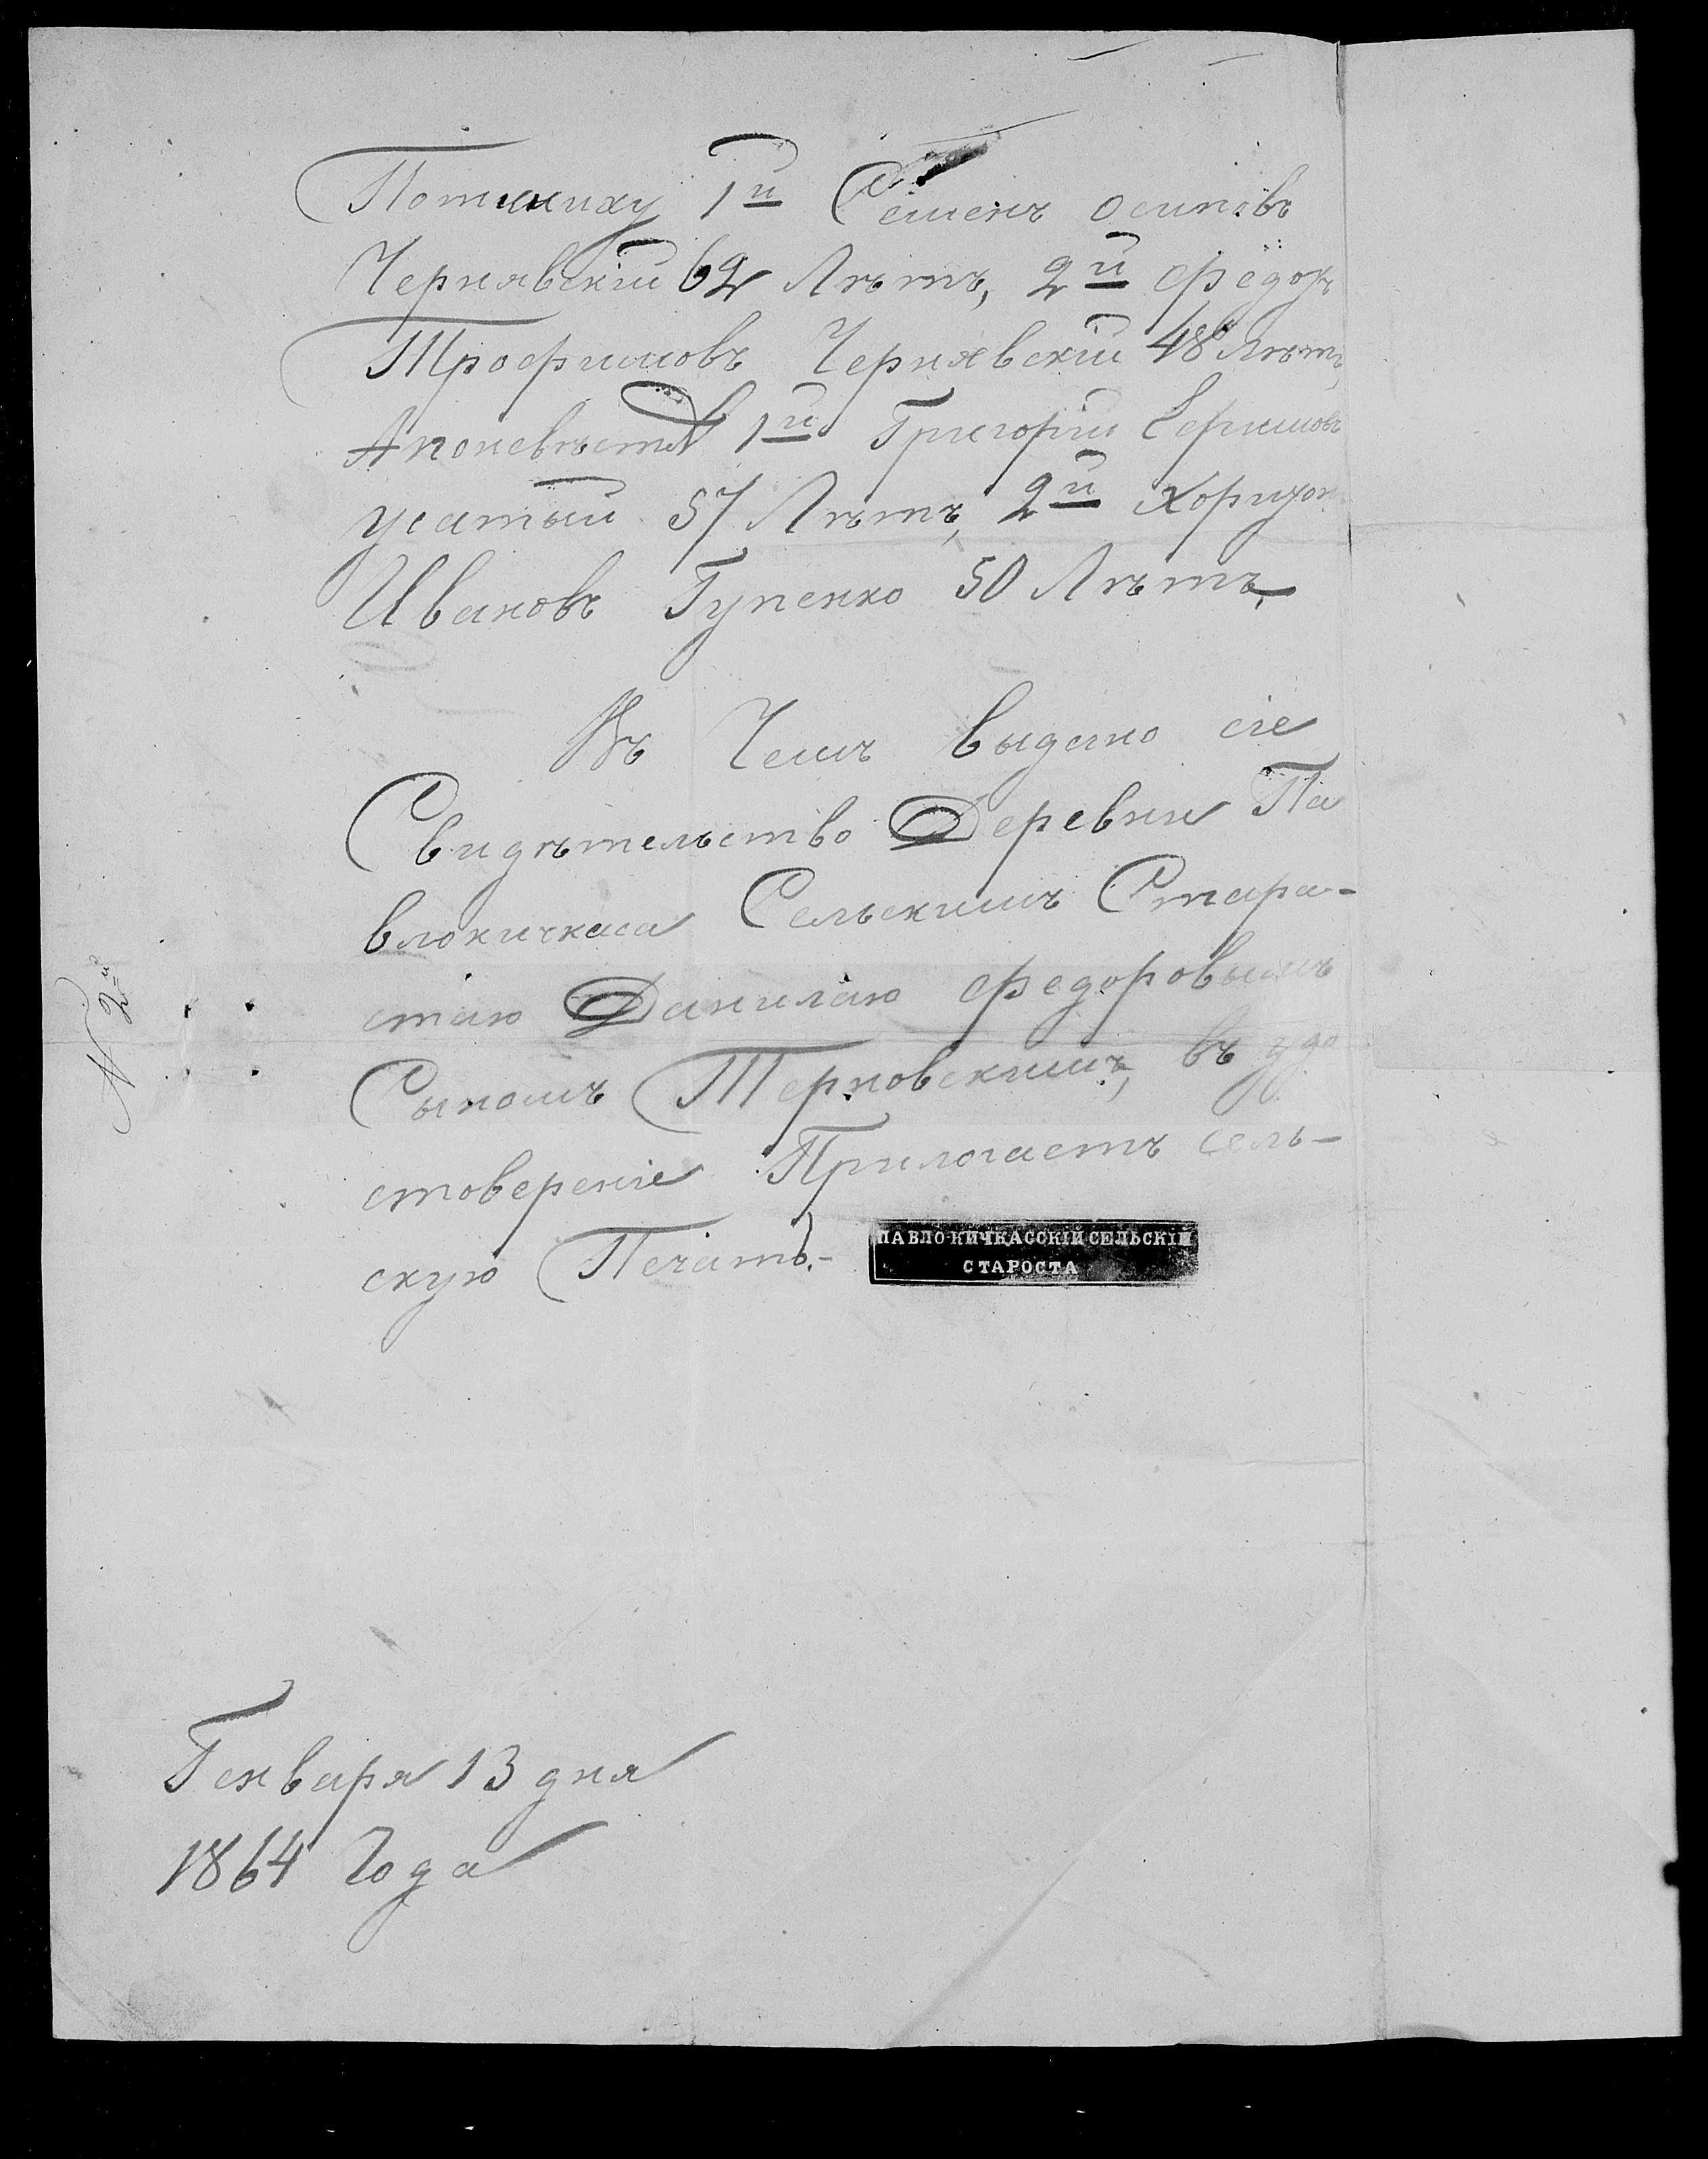 Потжениху 1й Семенъ осиповъ
Чернявскій 62 Лѣтъ, 2й федоръ
Трофимовъ Чернявскій 48 лѣтъ,
Апоневѣстѣ 1й Григорій Ефимовъ
усатый 57 Лѣтъ, 2й Харитон
Ивановъ Гупенко 50 Лѣтъ,
Въ Чемъ выдано сіе
Свидѣтельство Деревни Па
влокичкаса Сельскимъ Стара-
стаю Данилаю федоровымъ
Сыномъ Терновскимъ, въ удо
стоверение Прилогаетъ сель-
скую Печать.-
ПАВЛО-КИЧКАССКІЙ СЕЛЬСКІЙ
СТАРОСТА
N 2й
Генваря 13 дня
1864 Года